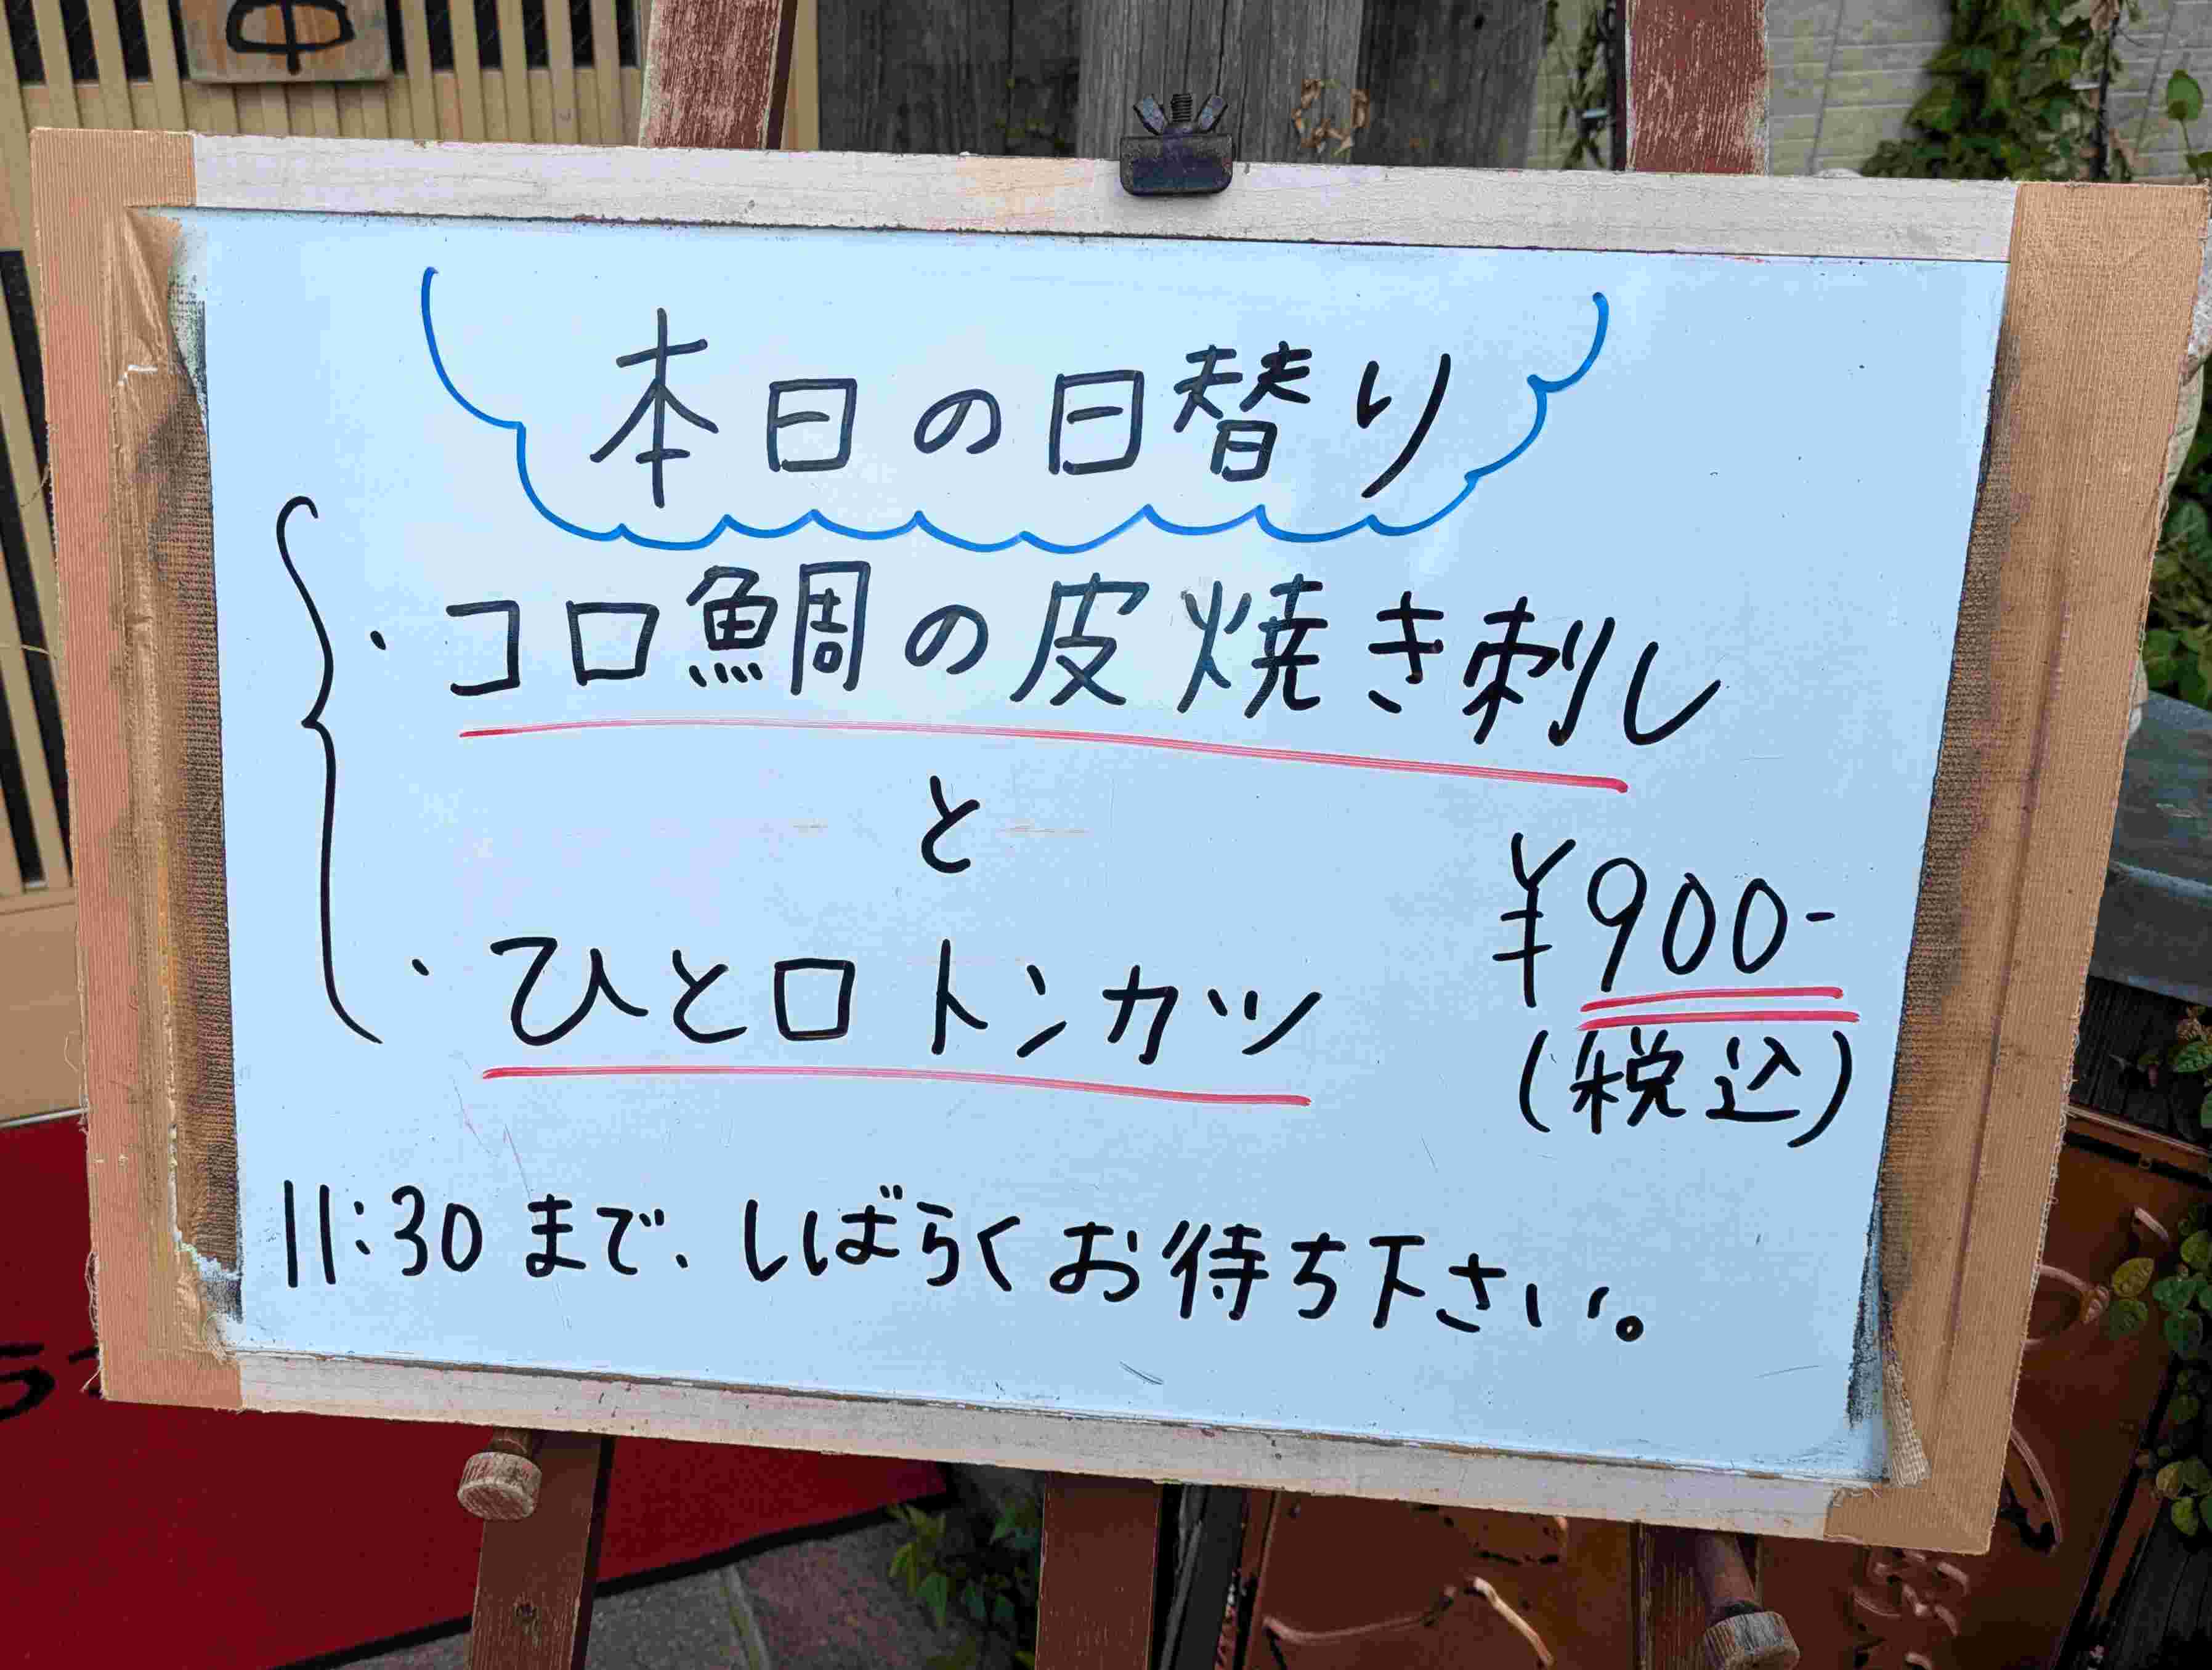 本日の日替り
・コロ鯛の皮焼き刺し
と
・ひと口トンカツ
¥900-
(税込)
11:30まで、しばらくお待ち下さい。